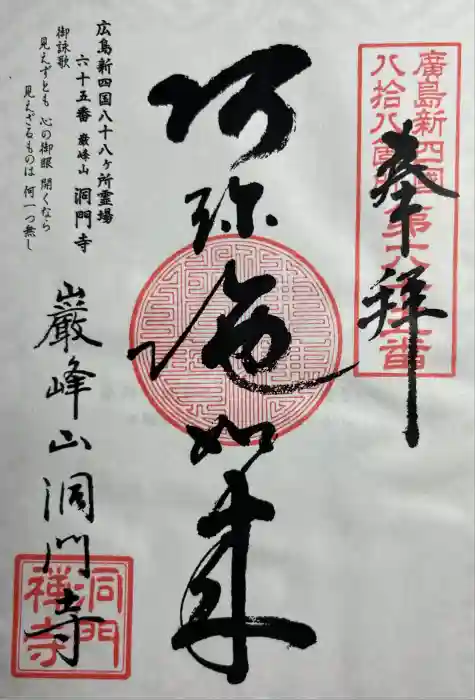 廣島新四國
八拾八箇所第六十五番
奉拝
阿弥陀如来
広島新四国八十八ヶ所霊場
六十五番 巌峰山 洞門寺
御詠歌
見えずとも 心の御眼 開くなら
見えざるものは 何一つ無し
巖峰山 洞門寺
洞門
禅寺